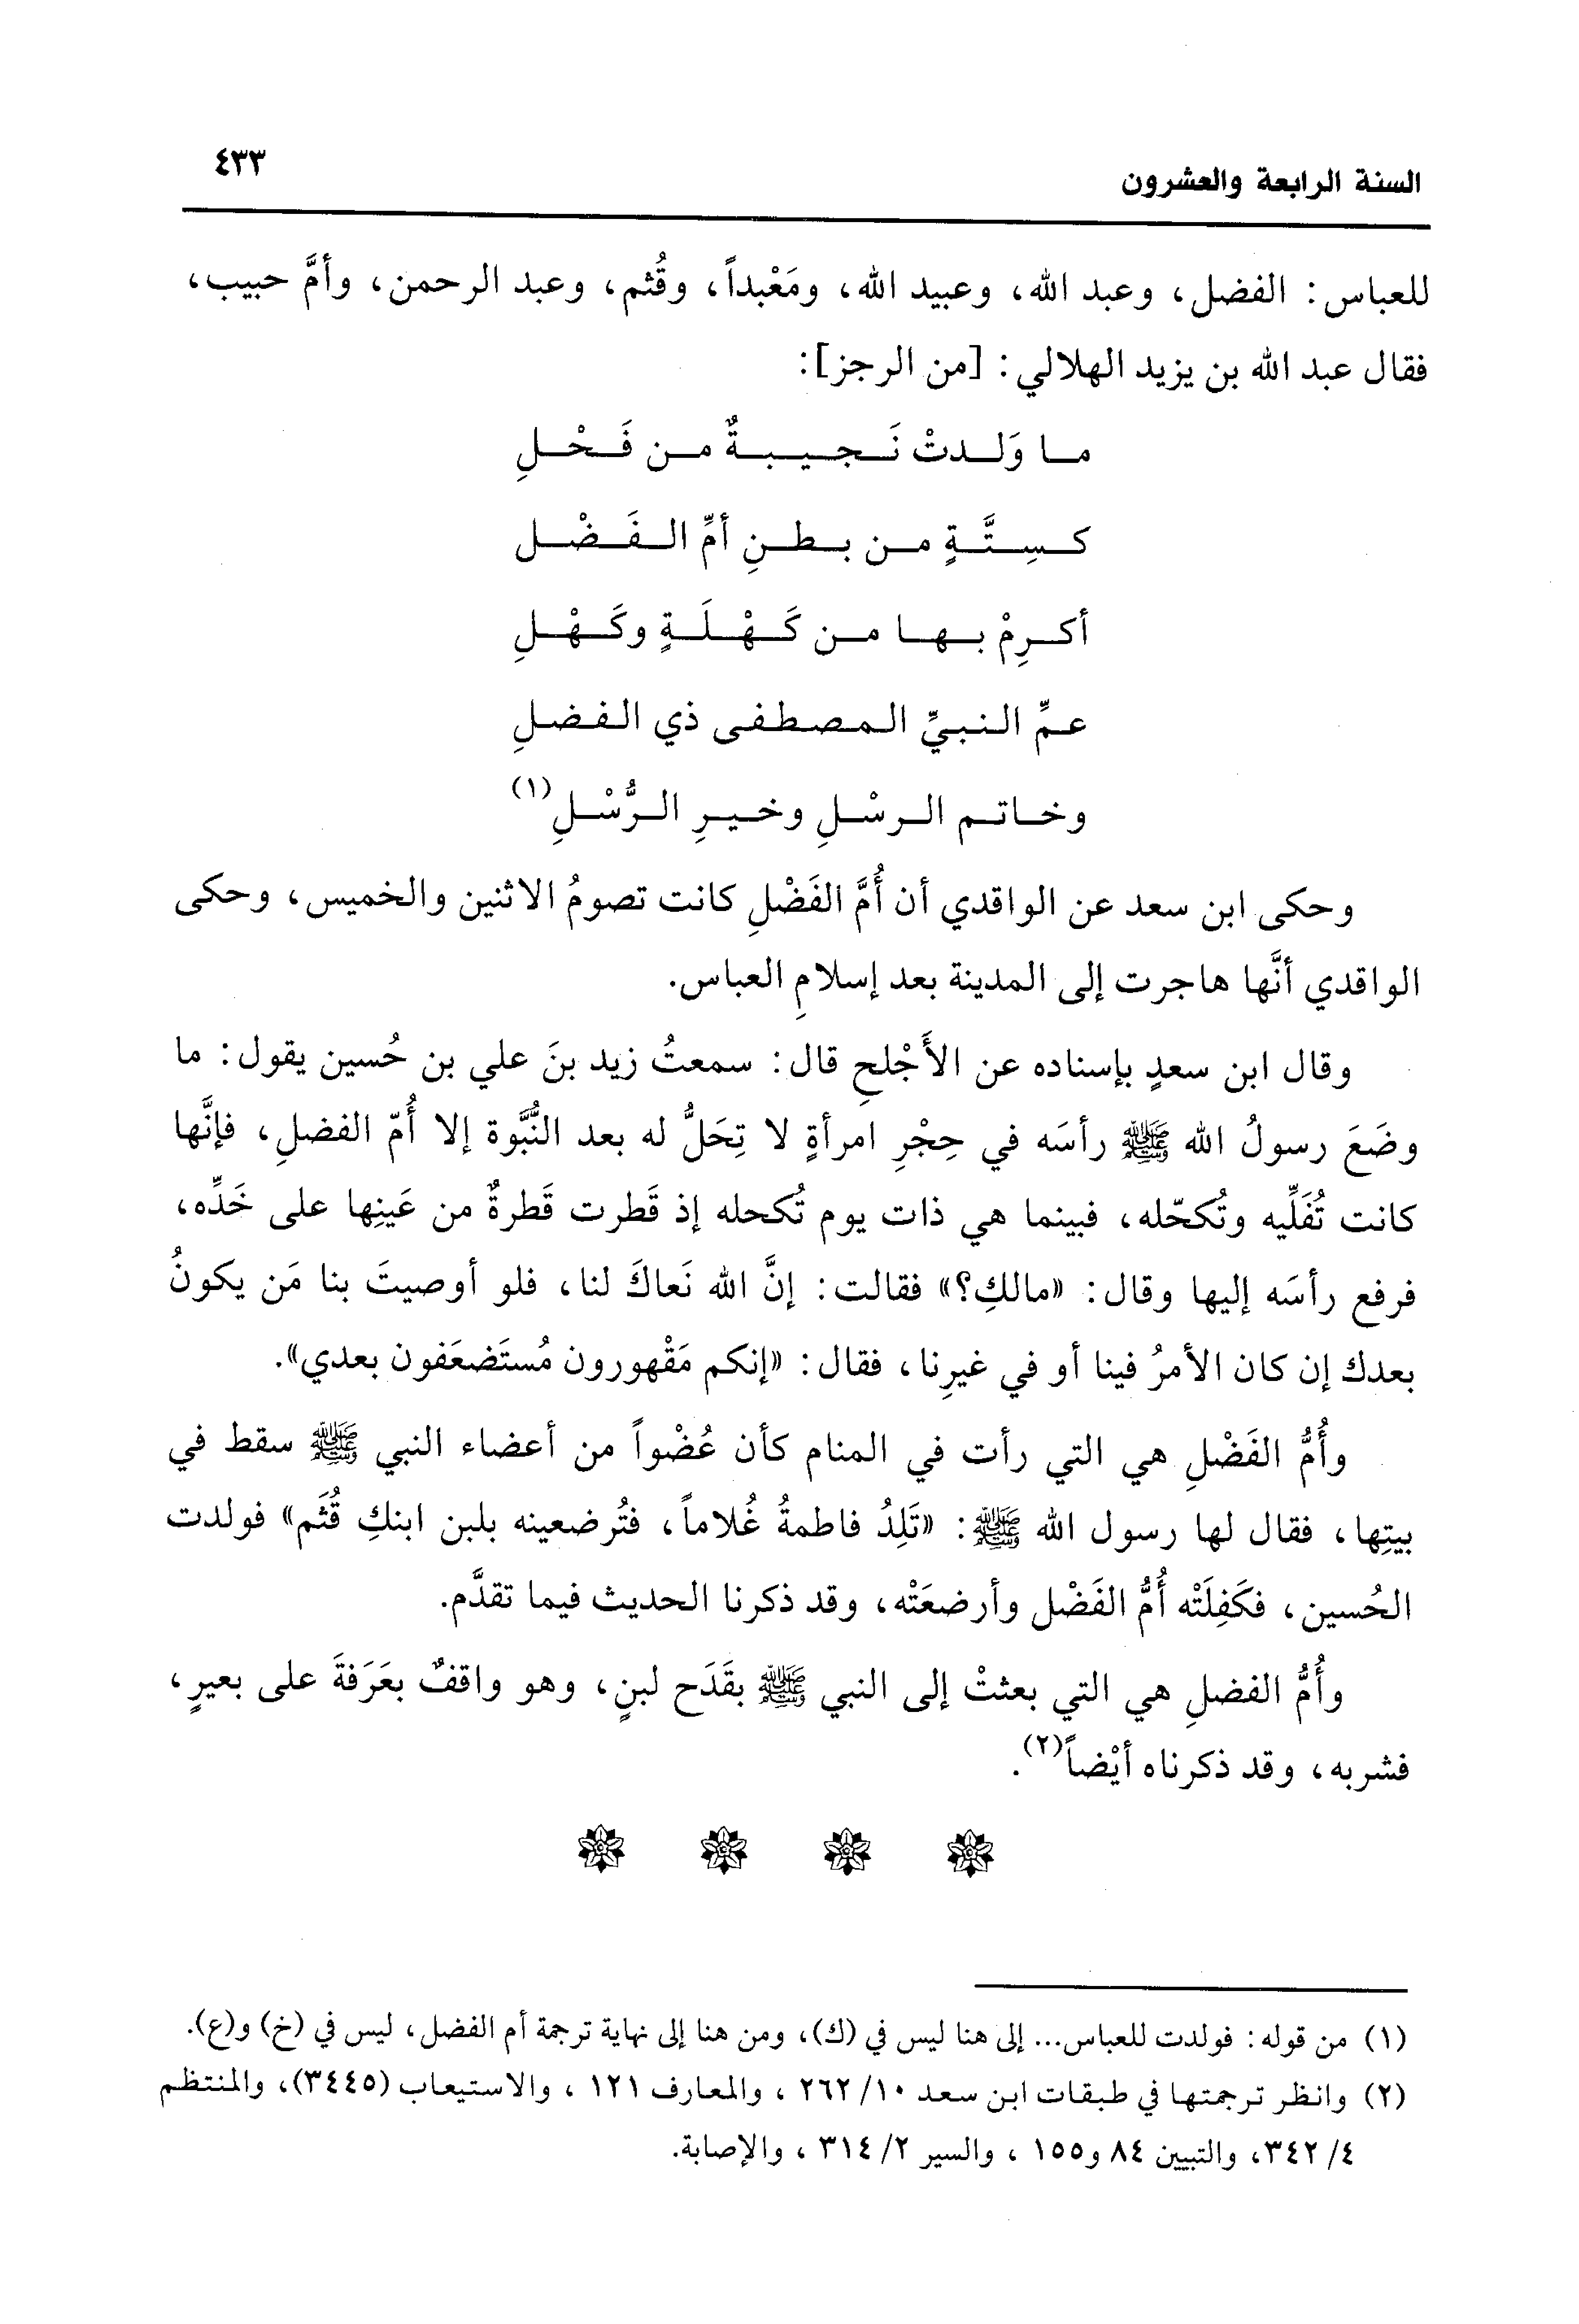 السنة الرابعة والعشرون
٤٣٣
للعباس: الفضل، وعبد الله، وعبيد الله، ومَعْبداً، وقُثم، وعبد الرحمن، وأمَّ حبيب،
فقال عبد الله بن يزيد الهلالي: [من الرجز]:
ما وَلدتْ نَجيبةٌ من فَحْلِ
كسِتَّةٍ من بطنِ أمِّ الفَضْل
أكرِمْ بها من كَهْلَةٍ وكَهْلِ
عمِّ النبيِّ المصطفى ذي الفضلِ
وخاتم الرسْلِ وخيرِ الرُّسْلِ(١)
وحكى ابن سعد عن الواقدي أن أُمَّ الفَضْلِ كانت تصومُ الاثنين والخميس، وحكى
الواقدي أنَّها هاجرت إلى المدينة بعد إسلامِ العباس.
وقال ابن سعدٍ بإسناده عن الأَجْلحِ قال: سمعتُ زيد بنَ علي بن حُسين يقول: ما
وضَعَ رسولُ الله ﷺ رأسَه في حِجْرِ امرأةٍ لا تِحَلُّ له بعد النُّبَّوة إلا أُمّ الفضلِ، فإنَّها
كانت تُفَلِّيه وتُكحّله، فبينما هي ذات يوم تُكحله إذ قَطرت قَطرةٌ من عَينِها على خَدِّه،
فرفع رأسَه إليها وقال: «مالكِ؟» فقالت: إنَّ الله نَعاكَ لنا، فلو أوصيتَ بنا مَن يكونُ
بعدك إن كان الأمرُ فينا أو في غيرِنا، فقال: «إنكم مَقْهورون مُستَضعَفون بعدي».
وأُمُّ الفَضْلِ هي التي رأت في المنام كأن عُضْواً من أعضاء النبي ﷺ سقط في
بيتِها، فقال لها رسول الله ﷺ: «تَلِدُ فاطمةُ غُلاماً، فتُرضعينه بلبن ابنكِ قُثَم» فولدت
الحُسين، فكَفِلَتْه أُمُّ الفَضْل وأرضعَتْه، وقد ذكرنا الحديث فيما تقدَّم.
وأُمُّ الفضلِ هي التي بعثتْ إلى النبي ﷺ بقَدَح لبنٍ، وهو واقفٌ بعَرَفةَ على بعيرٍ،
فشربه، وقد ذكرناه أيْضاً(٢).
(١) من قوله: فولدت للعباس... إلى هنا ليس في (ك)، ومن هنا إلى نهاية ترجمة أم الفضل، ليس في (خ) و(ع).
(٢) وانظر ترجمتها في طبقات ابن سعد ١٠/ ٢٦٢ ، والمعارف ١٢١ ، والاستيعاب (٣٤٤٥)، والمنتظم
٤/ ٣٤٢، والتبيين ٨٤ و١٥٥ ، والسير ٢/ ٣١٤ ، والإصابة.